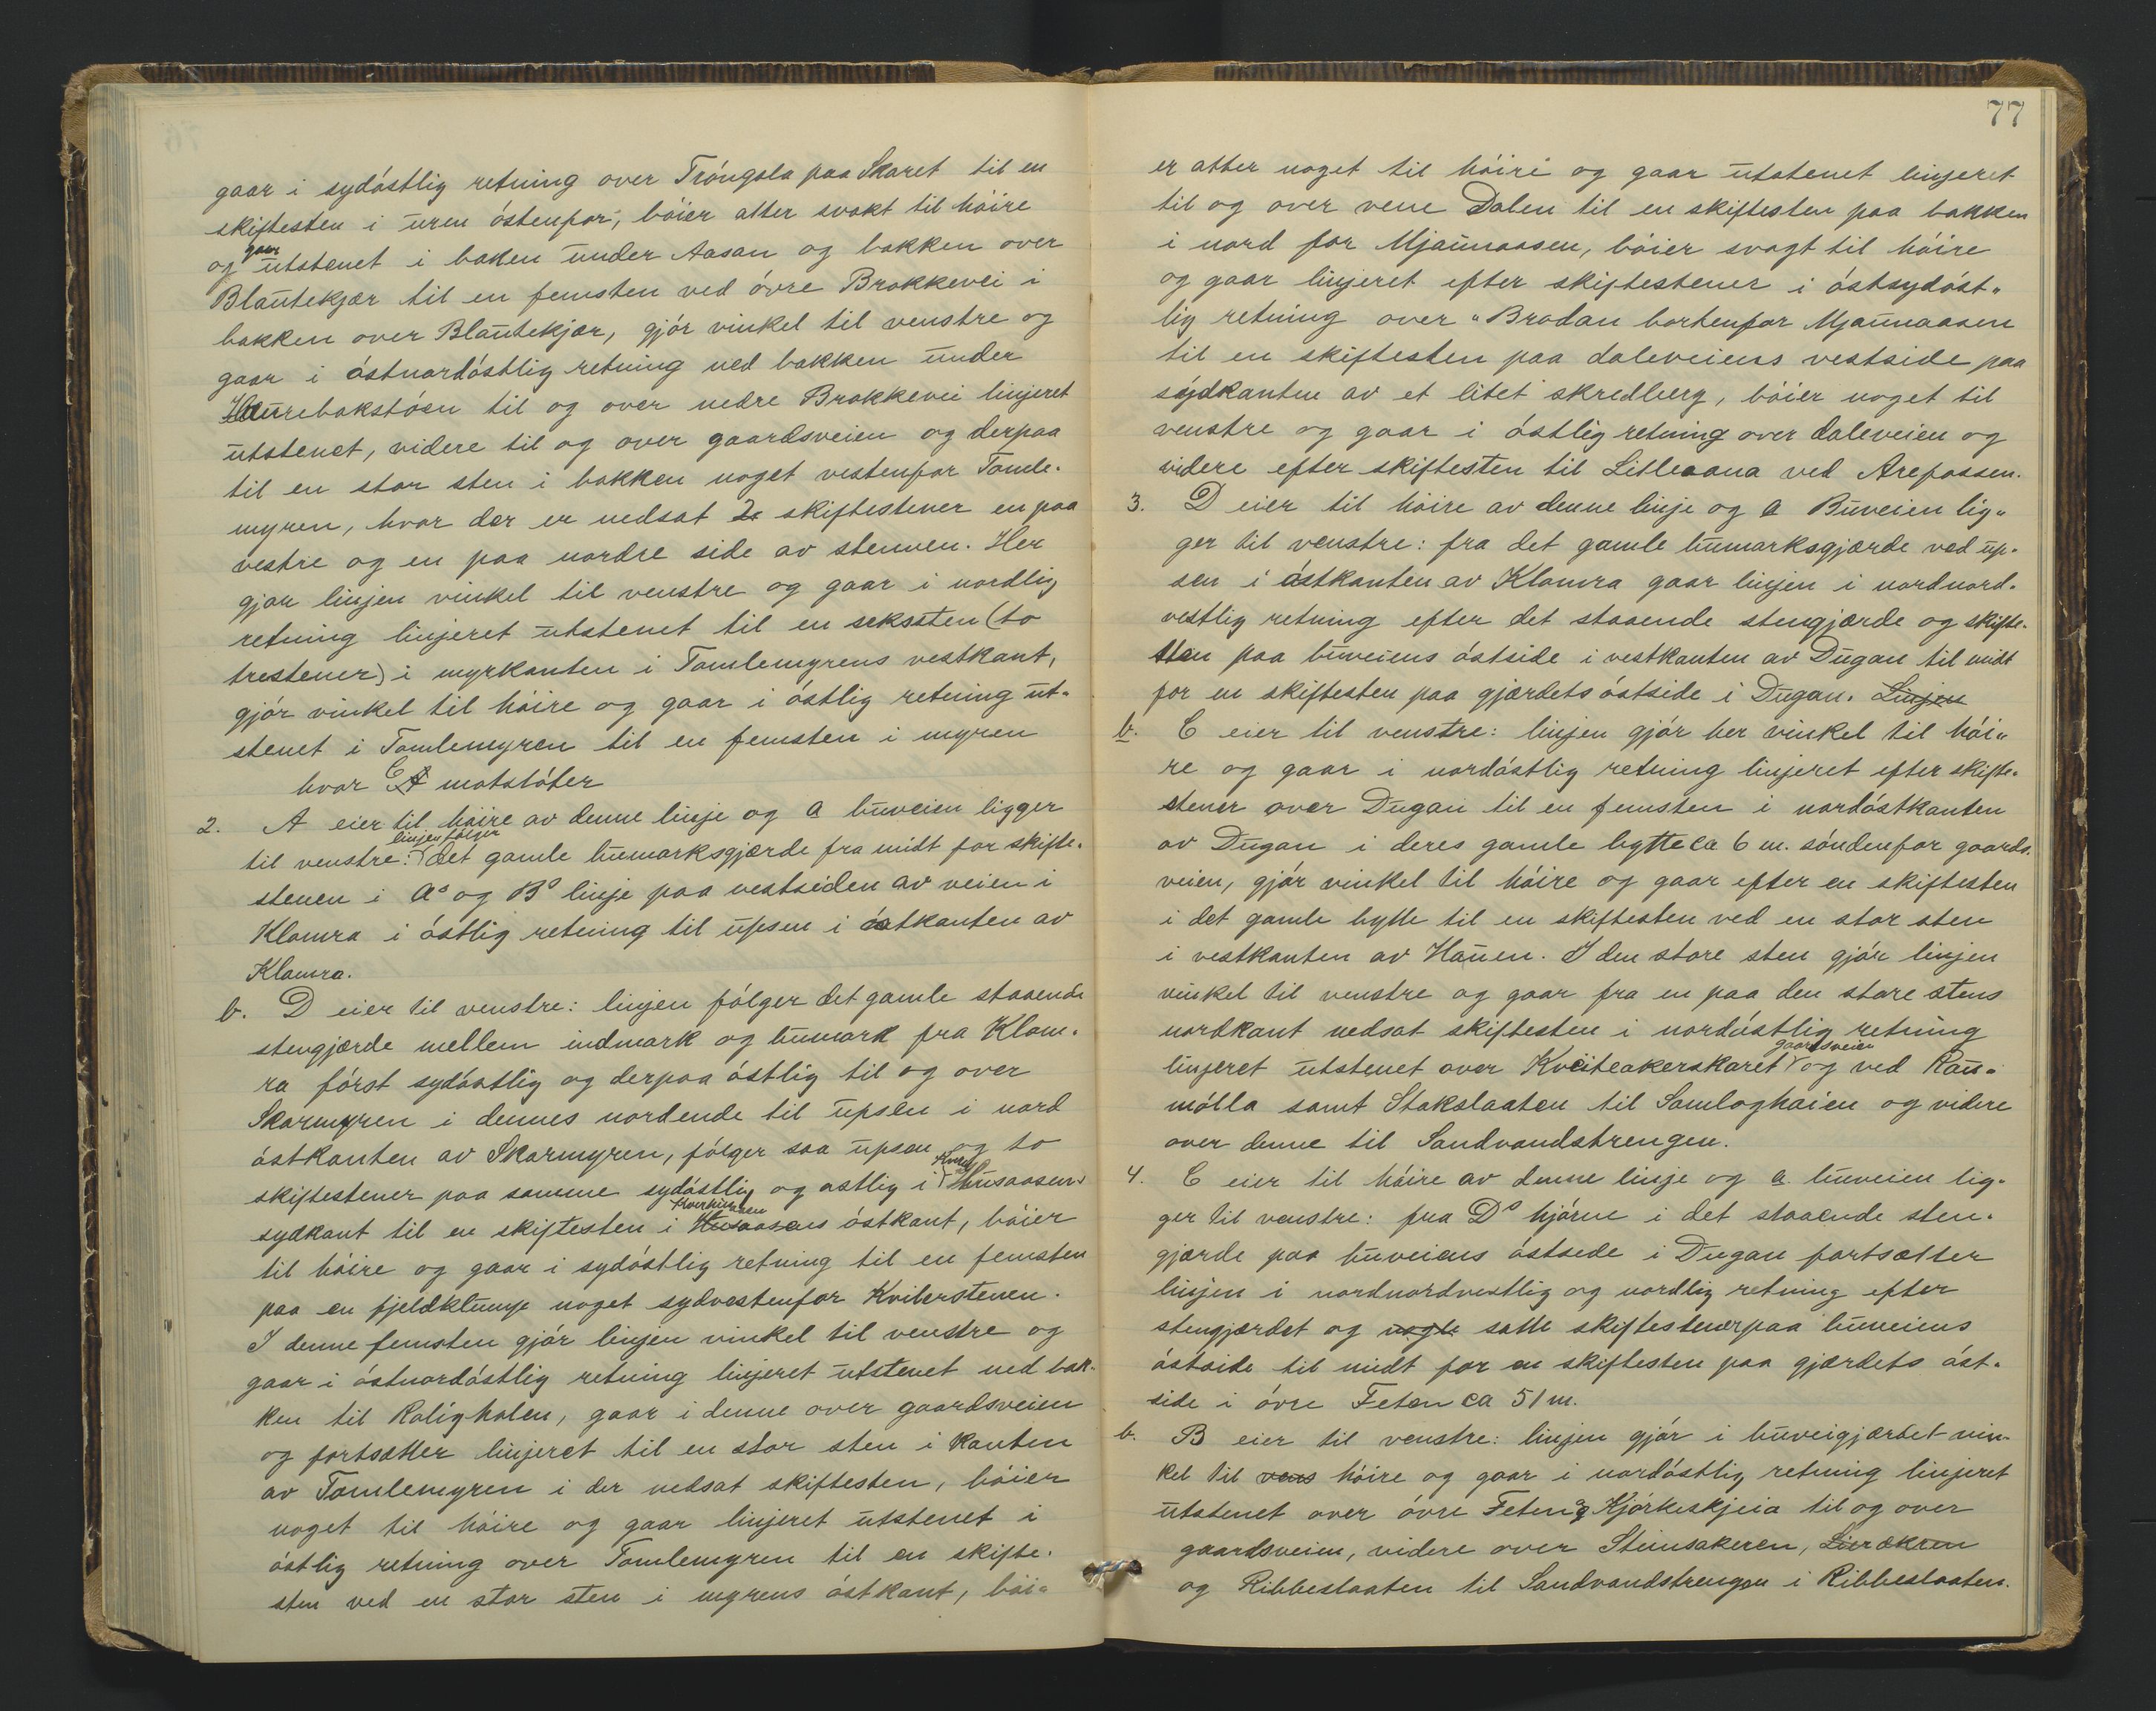 gaar i sydóstlig retning over Tróngola paa Skaret til en
skiftesten i uren óstenfor, bóier atter svakt til hóire
og gaar utstenet i bakken under Aasan og bakken over
Blautekjær til en femsten ved óvre Brokkevei i
bakken over Blautekjær, gjór vinkel til venstre og
gaar i óstnordóstlig retning ned bakken under
Haurebakstóen til og over nedre Brokkevei linjeret
utstenet, videre til og over gaardsveien og derpaa
til en stor sten i bakken noget vestenfor Tomle-
myren, hvor der er nedsat 2 skiftestener en paa
vestre og en paa nordre side av stenen. Her
gjør linjen vinkel til venstre og gaar i nordlig
retning linjeret utstenet til en seksten (to
trestener) i myrkanten i Tomlemyrens vestkant,
gjór vinkel til hóire og gaar i óstlig retning ut-
stenet i Tomlemyren til en femsten i myren
hvor C motstóter
2. A eier til hóire av denne linje og a buveien ligger
til venstre: linjen fólger det gamle bumarksgjærde fra midt for skifte-
stenen i As og Bs linje paa vestsiden av veien i
Klomra i óstlig retning til upsen i óstkanten av
Klomra.
b. D eier til venstre: linjen fólger det gamle staaende
stengjærde mellem indmark og bumark fra Klom-
ra fórst sydóstlig og derpaa óstlig til og over
Skarmyren i dennes nordende til upsen i nord
óstkanten av Skarmyren, fólger saa upsen og to
skiftestener paa samme sydóstlig og ostlig i Kvern Husaasens
sydkant til en skiftesten i Husaasens óstkant, bóier
til hóire og gaar i sydóstlig retning til en femsten
paa en fjeldklump noget sydvestenfor Kvilerstenen.
I denne femsten gjór linjen vinkel til venstre og
gaar i óstnordóstlig retning linjeret utstenet ned bak-
ken til Rolighalen, gaar i denne over gaardsveien
og fortsætter linjeret til en stor sten i kanten
av Tomlemyren i der nedsat skiftesten, bóier
noget til hóire og gaar linjeret utstenet i
óstlig retning over Tomlemyren til en skifte-
sten ved en stor sten i myrens óstkant, bói-
77
er atter noget til hóire og gaar utstenet linjeret
til og over vene Dalen til en skiftesten paa bakken
i nord for Mjaunaasen, bóier svagt til hóire
og gaar linjeret efter skiftestener i óstsydóst-
lig retning over "Brodan bortenfor Mjaunaasen
til en skiftesten paa daleveiens vestside paa
sydkanten av et litet skredberg, bóier noget til
venstre og gaar i óstlig retning over daleveien og
videre efter skiftesten til Litleaana ved Arefossen.
3. D eier til hóire av denne linje og a Buveien lig-
ger til venstre: fra det gamle bumarksgjærde ved up-
sen i óstkanten av Klomra gaar linjen i nordnord-
vestlig retning efter det staaende stengjærde og skifte-
sten paa buveiens óstside i vestkanten av Dugan til midt
for en skiftesten paa gjærdets óstside i Dugan. Linjen
b. C eier til venstre: linjen gjór her vinkel til hói-
re og gaar i nordóstlig retning linjeret efter skifte-
stener over Dugan til en femsten i nordóstkanten
av Dugan i deres gamle bytte ca 6 m. sóndenfor gaards-
veien, gjór vinkel til hóire og gaar efter en skiftesten
i det gamle bytte til en skiftesten ved en stor sten
i vestkanten av Hauen. I den store sten gjór linjen
vinkel til venstre og gaar fra en paa den store stens
nordkant nedsat skiftesten i nordóstlig retning
linjeret utstenet over Kveiteakerskaret gaardsveien og ved Rau-
mólla samt Stakslaaten til Samloghaien og videre
over denne til Sandvandstrengen.
4. C eier til hóire av denne linje og a buveien lig-
ger til venstre: fra Ds hjórne i det staaende sten-
gjærde paa buveiens óstside i Dugan fortsætter
linjen i nordnordvestlig og nordlig retning efter
stengjærdet og nogle satte skiftestener paa buveiens
óstside til midt for en skiftesten paa gjærdets óst-
side i óvre Feten ca 51 m.
b. B eier til venstre: linjen gjór i buveigjærdet vin-
kel til vens hóire og gaar i nordóstlig retning linjeret
utstenet over óvre Feten og Kjórkeskjeia til og over
gaardsveien, videre over Steinsakeren, Lierækren
og Ribbeslaaten til Sandvandstrengen i Ribbeslaaten.